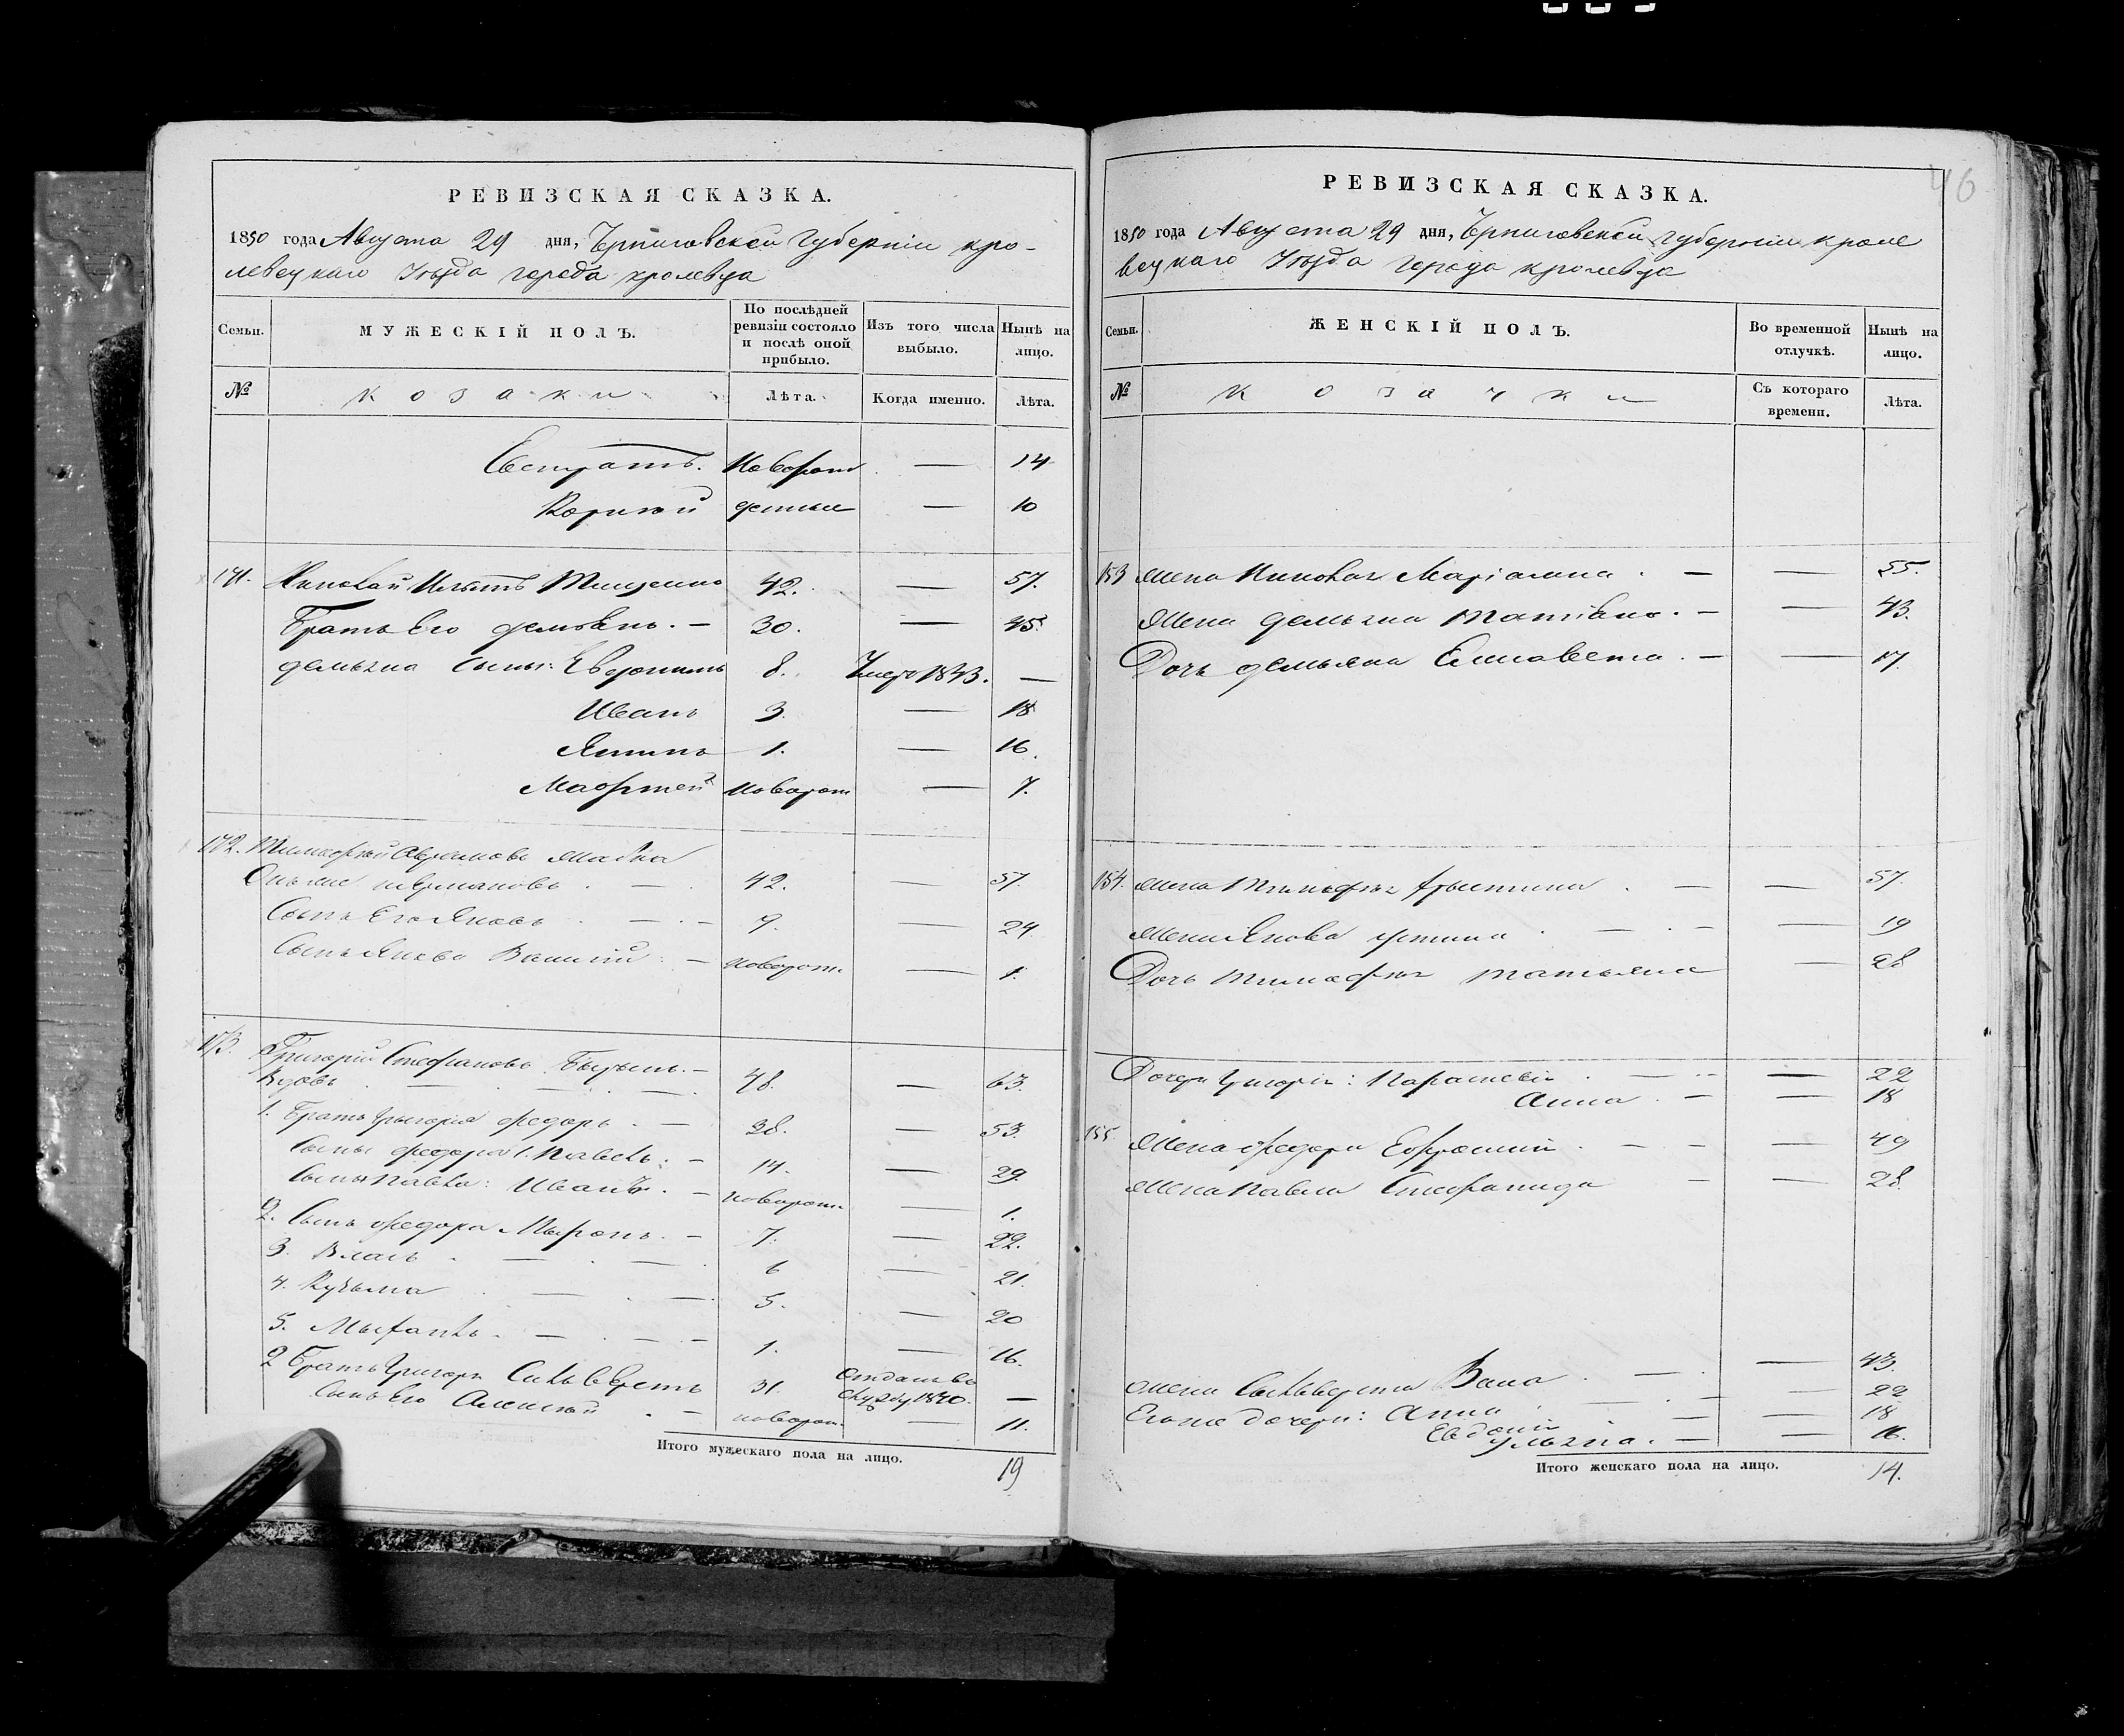 46
РЕВИЗСКАЯ СКАЗКА.
1850 года Августа 29 дня, Черниговской Губернiи кро-
левецкаго Уѣзда города кролевца
Семьи.
МУЖЕСКIЙ ПОЛЪ.
По послѣдней ревизiи состояло и послѣ оной прибыло.
Изъ того числа выбыло.
Нынѣ на лицо.
№
козаки
Лѣта.
Когда именно.
Лѣта.
Евстратъ. Новорож — 14
Корнѣй денные — 10
171. 42. — 57.
Братъ Его демьянъ. — 30. — 45.
демьяна сыны: 8. Умеръ 1843. —
Иванъ 3. — 18
1. — 16.
Новорож — 7.
172. Тимофей Аврамовъ
42. — 57.
Сынъ Его Яковъ — 9. — 24
Сынъ Якова Василiй — новорож. — 1.
173. Григорiй Стефановъ
Вдовъ — 48. — 63.
1. Братъ Григорiя федоръ — 38. — 53.
Сыны федора 1. Павелъ — 14. — 29.
Сынъ Павла: Иванъ. — новорож. — 1.
2. Сынъ федора Миронъ. — 7. — 22.
3. Власъ — 6 — 21.
4. Кузьма — 5. — 20
5. — 1. — 16.
2 Братъ Григорiя Сильверстъ 31. Отданъ во службу 1840. —
Сынъ Его Алексѣй — новорож. — 11.
Итого мужескаго пола на лицо. 19
РЕВИЗСКАЯ СКАЗКА.
1850 года Августа 29 дня, Черниговской губернiи кроле
вецкаго Уѣзда города кролевца
Семьи.
ЖЕНСКIЙ ПОЛЪ.
Во временной отлучкѣ.
Нынѣ на лицо.
№
козачки
Съ котораго времени.
Лѣта.
153 Жена Марiанна — — 55.
Жена демьяна Татiана. — — 43.
Дочь демьяна Елисавета. — — 17.
154. Жена Тимофея — — 57.
Жена Якова — — 19
Дочь Тимофея Татьяна — 28
Дочери Григорiя: Параскевiя — — 22
Анна — — 18
155 Жена федора Ефросинiя — — 49
Жена Павла Стефанида — — 28.
Жена Сильверста — — 43.
Егоже дочери: Анна — — 22
Евдокiя — — 18
Ульяна. — — 16.
Итого женскаго пола на лицо. 14.